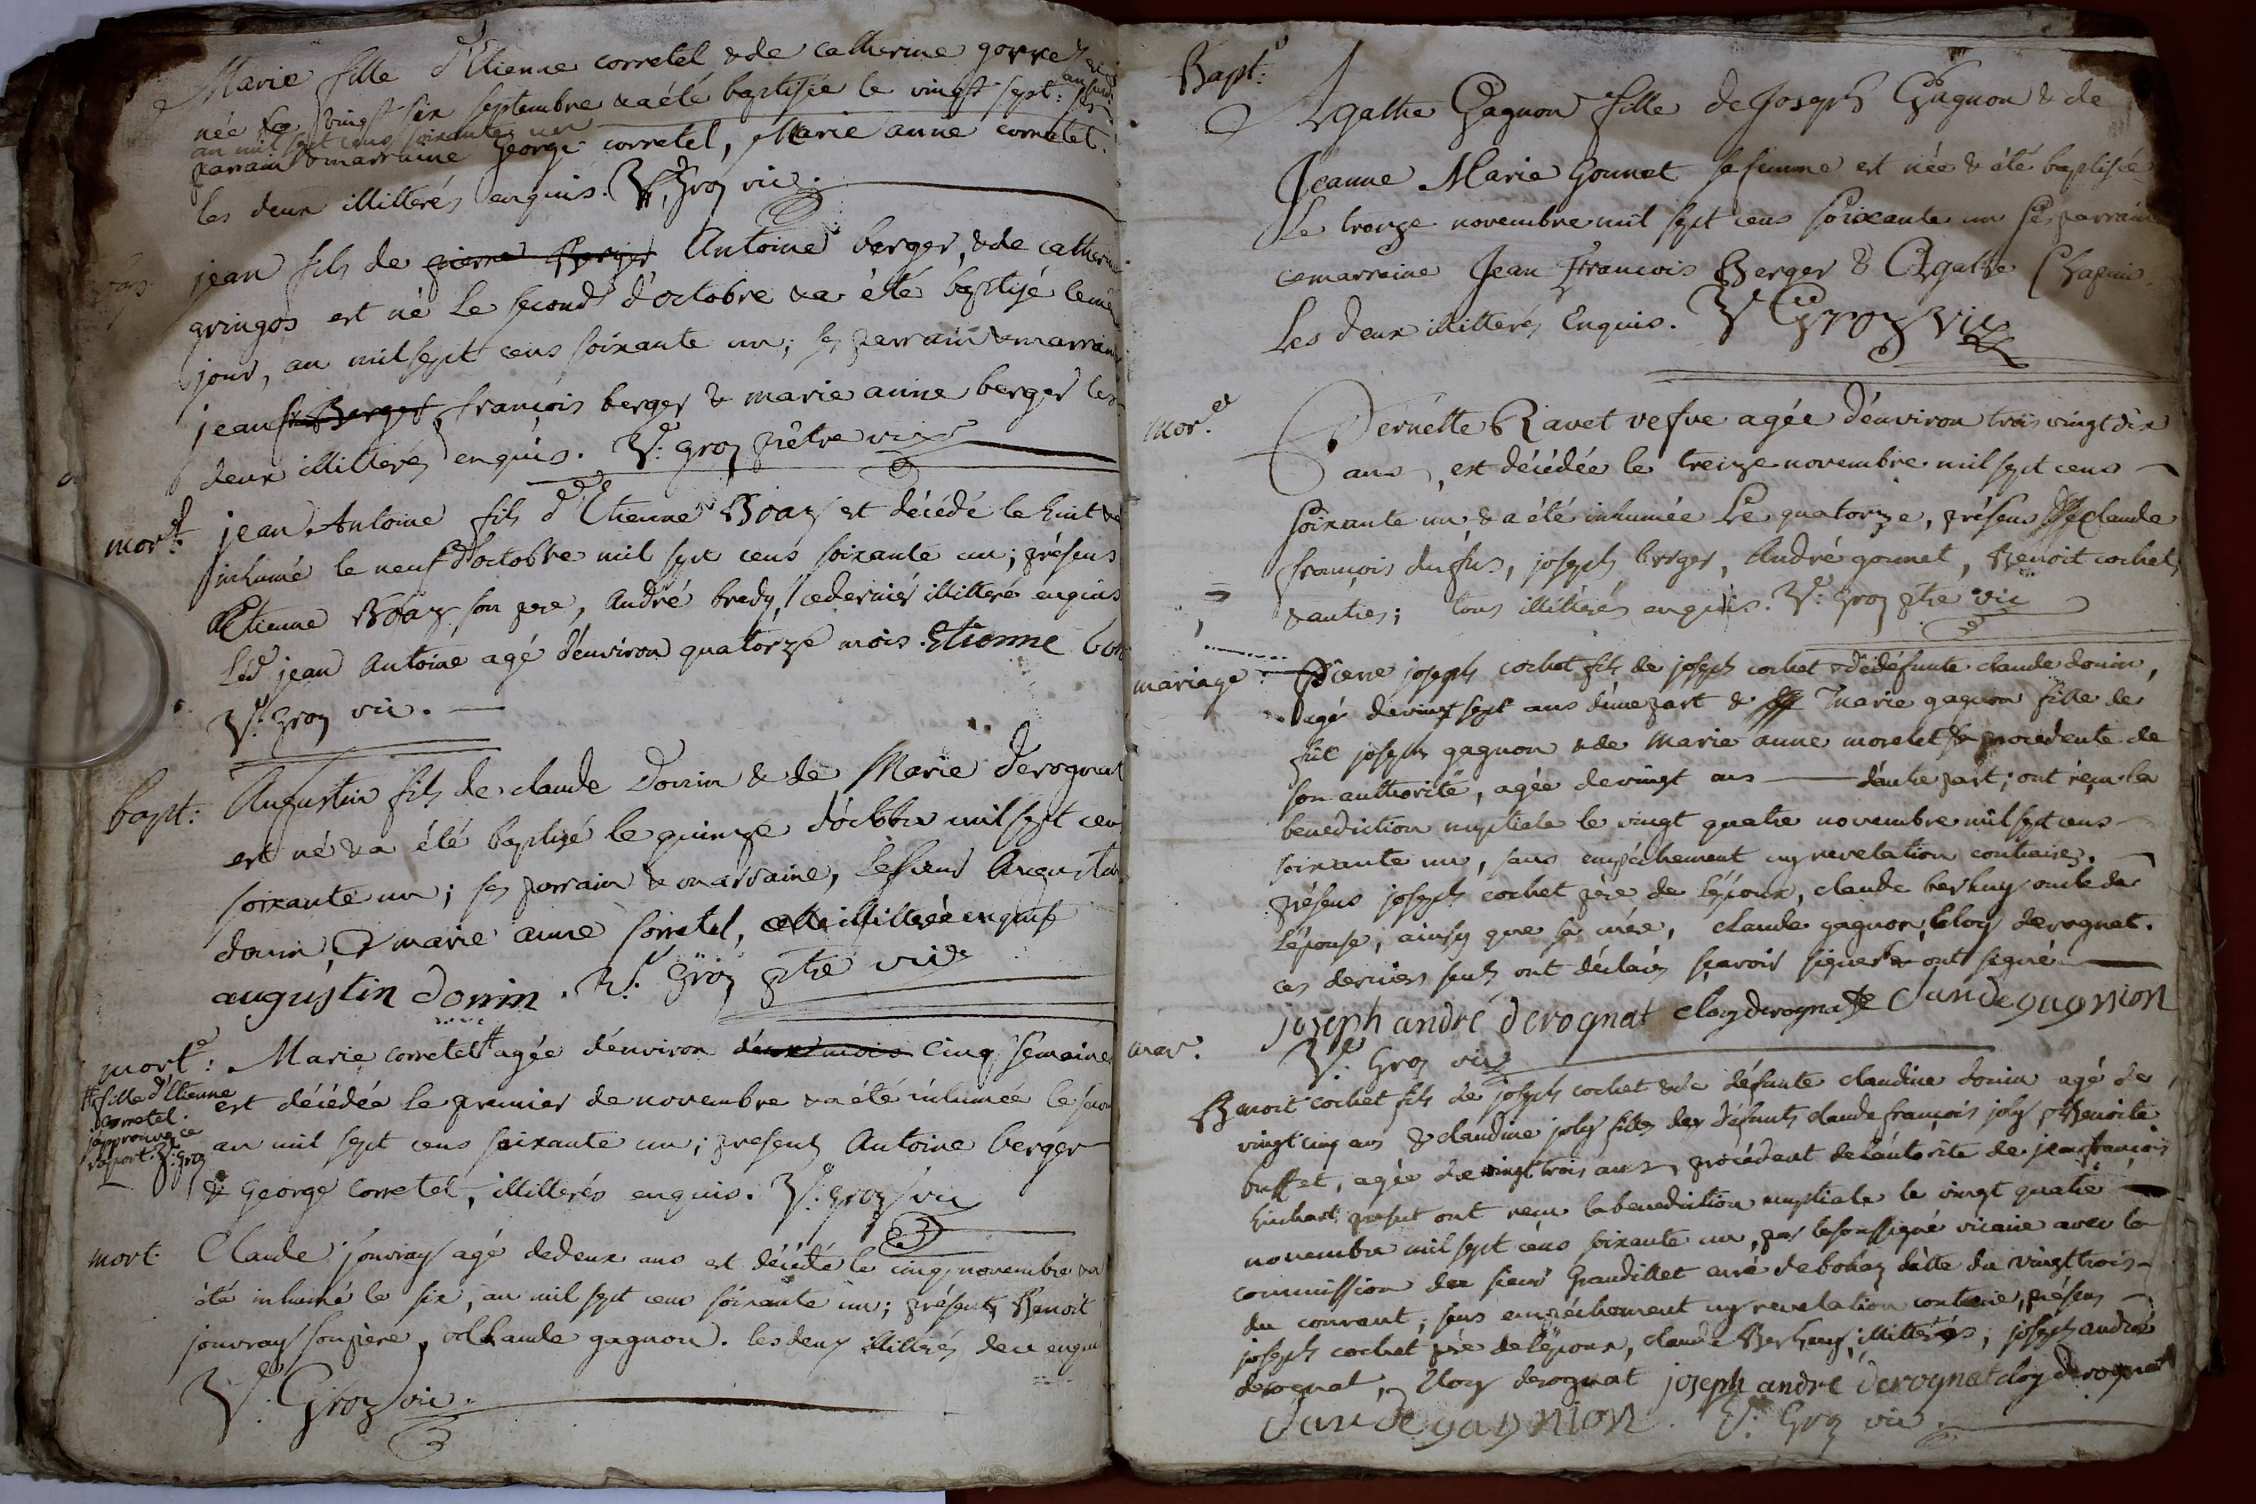 Marie fille d'Etienne corretel & de catherine gorret
née le vingt six septembre & a été baptisée le vingt sept:
an mil sept cens soixante un
parrain & marraine George corretel, Marie anne corretel.
les deux illitterés enquis. V: Groz vic.
jean fils de pierre Berger Antoine berger, & de catherine
gringos est né Le second d'octobre & a été baptisé le mê
jour, an mil sept cens soixante un; ses parrain & marraine
jean fr. Berger françois berger & marie anne berger les
deux illitterés enquis. V: groz prêtre vic
mort: jean Antoine fils d'Etienne Boaz est décédé le huit &
inhumé le neuf d'octobre mil sept cens soixante un; présens
Etienne Boaz son pere, André bredy, ce dernier illitteré enquis
Led jean Antoine agé d'environ quatorze mois. Etienne bo
V: groz vic.
bapt: Augustin fils de claude Donin & de Marie derognat
est né & a été baptisé le quinze d'octobre mil sept cen
soixante un; ses parrain & marraine, le sieur Augustin
donin, & marie anne corretel, celle illitterée enquise
augustin donin. V: groz ptre vic
morte: Marie corretel agée d'environ deux mois cinq semaines
fille d'Etienne
corretel.
j'approuve ce
raport. V: groz
est décédée le premier de novembre & a été inhumée le second
an mil sept cens soixante un; presens Antoine berger
& George corretel, illitterés enquis. V: groz vic
mort. Claude jouvray agé de deux ans est décédé le cinq novembre & a
été inhumé le six, an mil sept cens soixante un; présents Benoit
jouvray son pere, & claude gagnon. les deux illitterés de ce enquis
V: Groz vic.
Bapt:
Agathe Gagnon fille de Joseph Gagnon & de
Jeanne Marie Gonnet sa femme est née & été baptisée
Le treize novembre mil sept cens soixante un ses parrain
& marraine Jean François Berger & Agathe Chapuis.
Les deux illitterés Enquis. V: Groz vic
mor.e Pernette Ravet vefve agée d'environ trois vingt dix
ans, est décédée le treize novembre mil sept cens
soixante un & a été inhumée Le quatorze, présens claude
françois dufus, joseph berger, André gonnet, Benoit cochet,
& autres; tous illitterés enquis. V: groz ptre vic
mariage: Pierre joseph cochet fils de joseph cochet & de défunte claude donin,
agé de vingt sept ans d'une part & Marie gagnon fille de
fut joseph gagnon & de Marie anne morelet & procedente de
son authorité, agée de vingt ans d'autre part; ont reçu la
benediction nuptiale le vingt quatre novembre mil sept cens
soixante un, sans empêchement ny revelation contraires.
présens joseph cochet père de l'époux, claude berhuy oncle de
l'épouse, ainsy que sa mère, claude gagnon, eloy derognat.
ces derniers seuls ont déclarés sçavoir signer & ont signé
joseph andré derognat eloy derognat claude gagnion
V: Groz vic
mar.
Benoit cochet fils de joseph cochet & de défunte claudine donin agé de
vingt cinq ans & claudine joly fille des défunts claude françois joly & Benoite
buffet, agée de vingt trois ans, procédant de l'autorité de jean françois
present ont reçu la benediction nuptiale le vingt quatre
novembre mil sept cens soixante un, par le soussigné vicaire avec la
commission du sieur Grandillet curé de bohaz datte du vingt trois
du courant, sans empêchement ny revelation contraire, présens
joseph cochet père de l'époux, claude Berhuy, illitterés, joseph andré
derognat, Eloy derognat joseph andré derognat eloy derognat
claude gagnion. V: Groz vic.